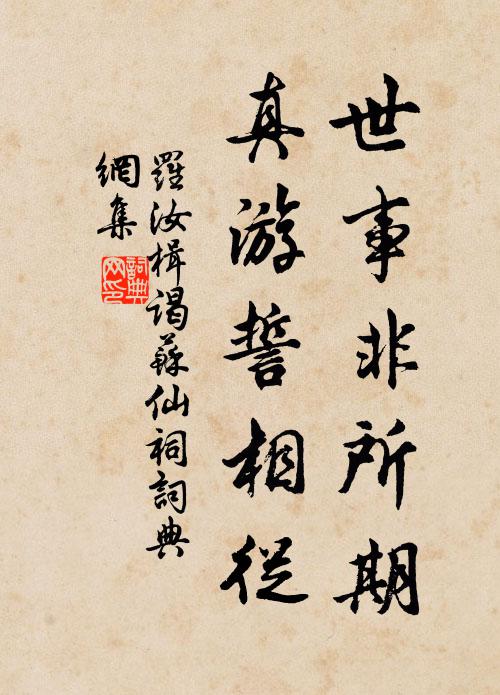 世事非所期
真游誓相從
羅汝楫謁蘇仙祠詞典
網集
詞典
网印